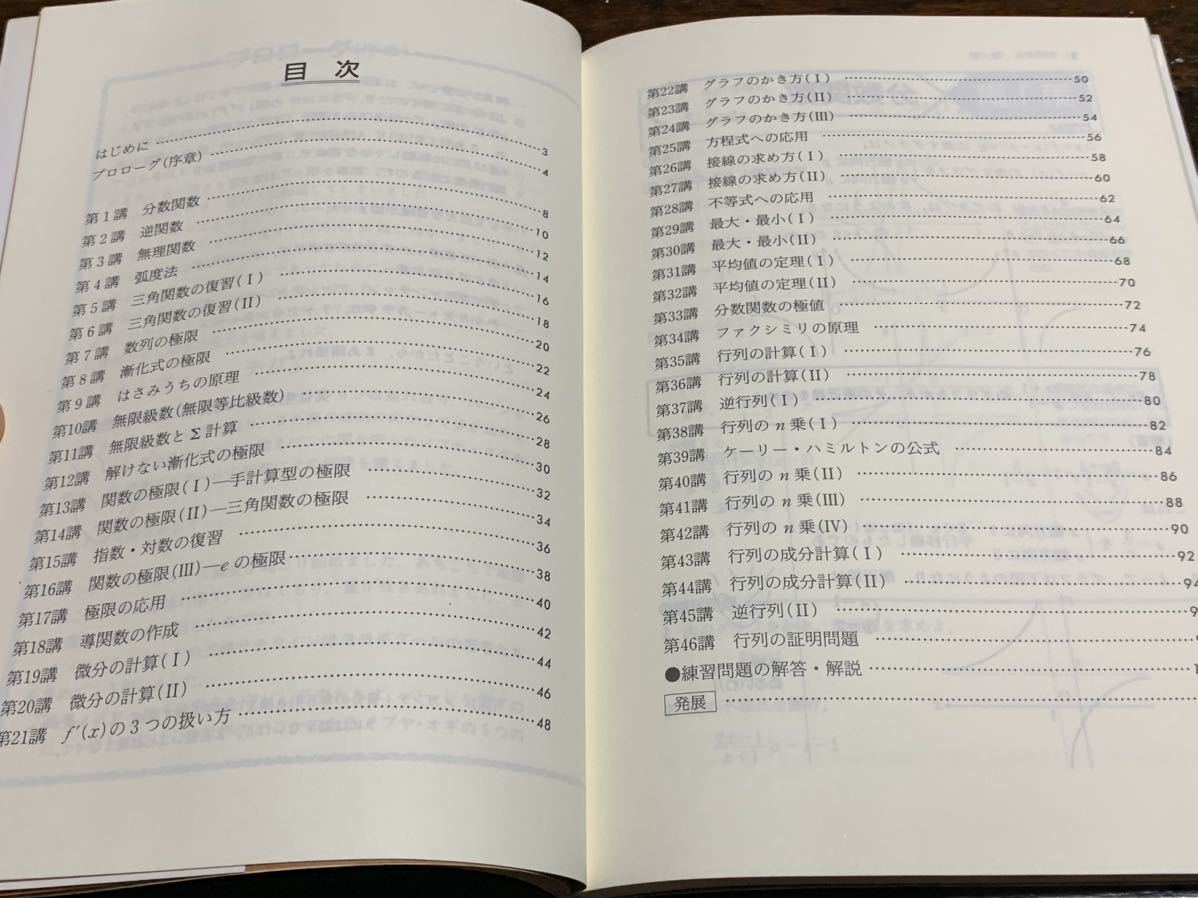 目 次
はじめに 3
プロローグ(序章) 4
第1講 分数関数 8
第2講 逆関数 10
第3講 無理関数 12
第4講 弧度法 14
第5講 三角関数の復習(I) 16
第6講 三角関数の復習(II) 18
第7講 数列の極限 20
第8講 漸化式の極限 22
第9講 はさみうちの原理 24
第10講 無限級数(無限等比級数) 26
第11講 無限級数とΣ計算 28
第12講 解けない漸化式の極限 30
第13講 関数の極限(I)―手計算型の極限 32
第14講 関数の極限(II)―三角関数の極限 34
第15講 指数・対数の復習 36
第16講 関数の極限(III)―eの極限 38
第17講 極限の応用 40
第18講 導関数の作成 42
第19講 微分の計算(I) 44
第20講 微分の計算(II) 46
第21講 f′(x)の3つの扱い方 48
第22講 グラフのかき方(I) 50
第23講 グラフのかき方(II) 52
第24講 グラフのかき方(III) 54
第25講 方程式への応用 56
第26講 接線の求め方(I) 58
第27講 接線の求め方(II) 60
第28講 不等式への応用 62
第29講 最大・最小(I) 64
第30講 最大・最小(II) 66
第31講 平均値の定理(I) 68
第32講 平均値の定理(II) 70
第33講 分数関数の極値 72
第34講 ファクシミリの原理 74
第35講 行列の計算(I) 76
第36講 行列の計算(II) 78
第37講 逆行列(I) 80
第38講 行列の n 乗(I) 82
第39講 ケーリー・ハミルトンの公式 84
第40講 行列の n 乗(II) 86
第41講 行列の n 乗(III) 88
第42講 行列の n 乗(IV) 90
第43講 行列の成分計算(I) 92
第44講 行列の成分計算(II) 94
第45講 逆行列(II)
第46講 行列の証明問題
●練習問題の解答・解説
発展